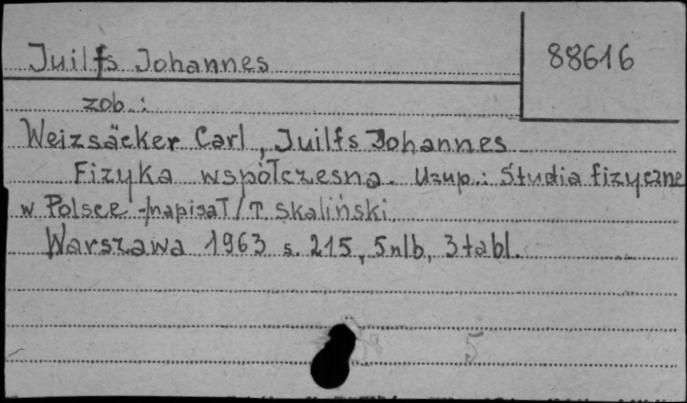 Juilfs Johannes
88616
zob.:
Weizsäcker Carl, Juilfs Johannes
Fizyka współczesna. Uzup.: Studia fizyczne
w Polsce /napisał/ T. Skaliński.
Warszawa 1963 s. 215, 5nlb, 3 tabl.
5